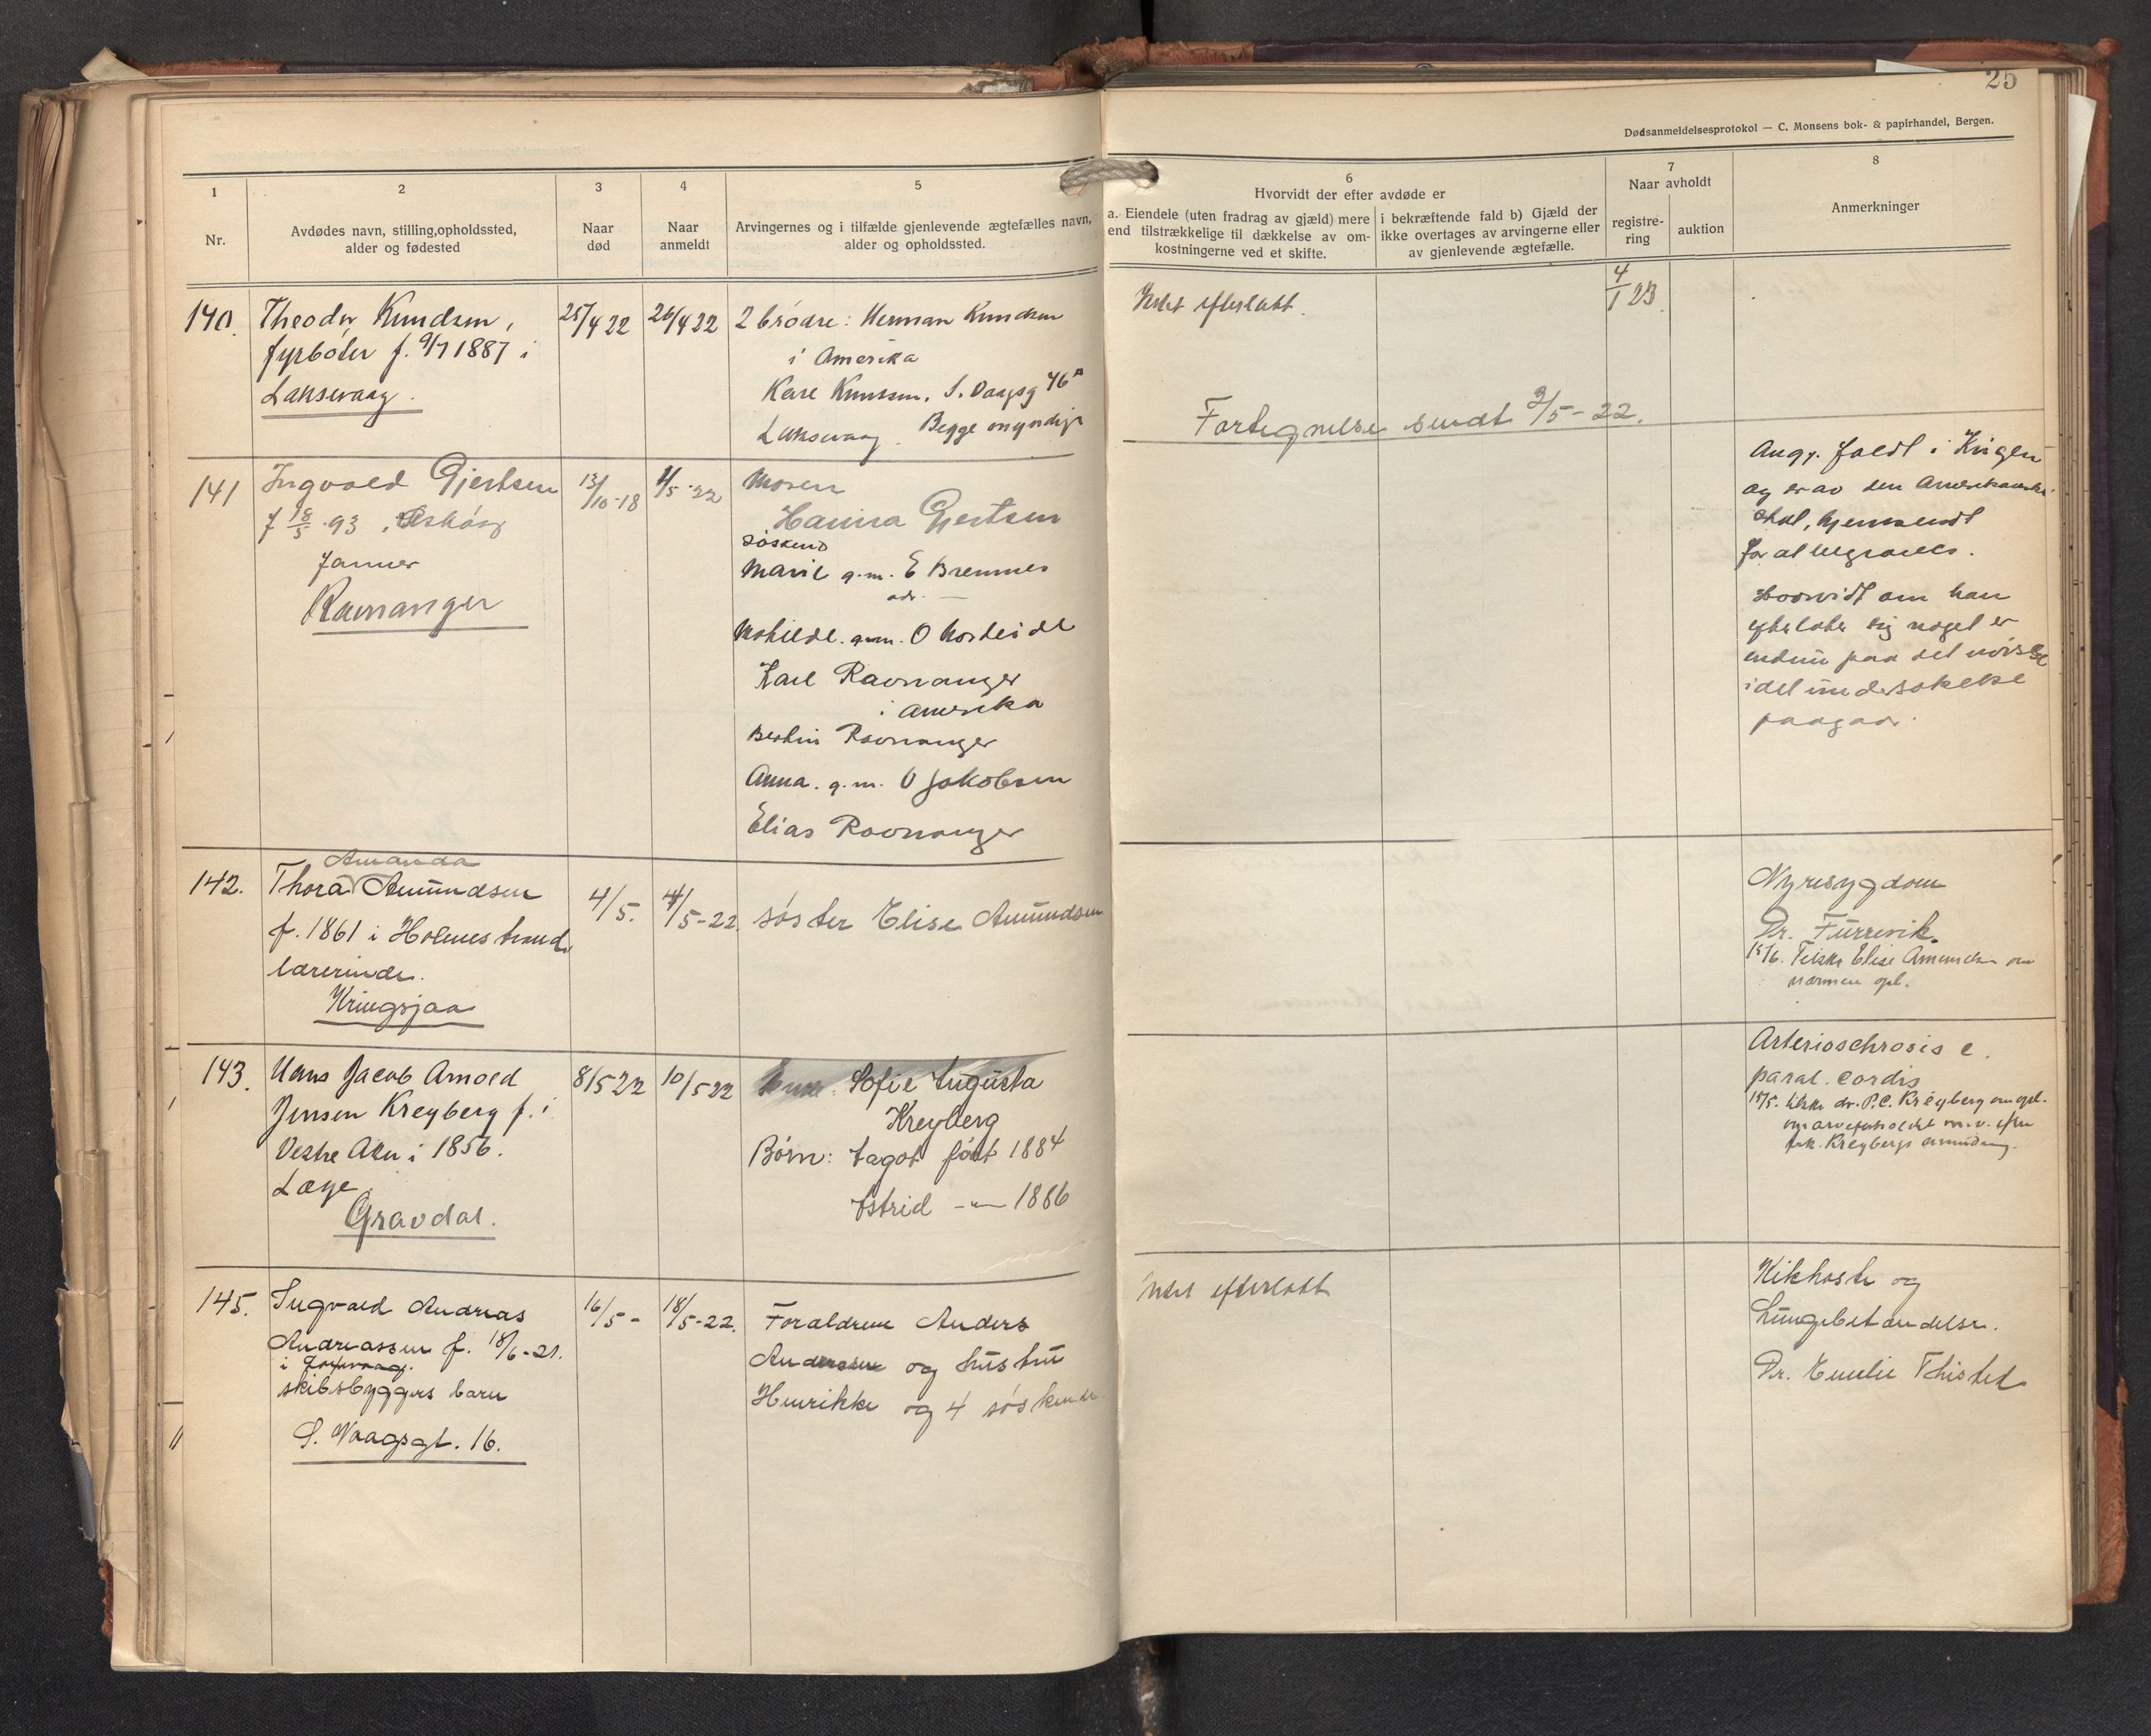 25
Dødsanmeldelsesprotokol — C. Monsens bok- & papirhandel, Bergen.
1
Nr.
2
Avdødes navn, stilling, opholdssted,
alder og fødested
3
Naar
død
4
Naar
anmeldt
5
Arvingernes og i tilfælde gjenlevende ægtefælles navn,
alder og opholdssted.
6
Hvorvidt der efter avdøde er
a. Eiendele (uten fradrag av gjæld) mere
end tilstrækkelige til dækkelse av om-
kostningerne ved et skifte.
i bekræftende fald b) Gjæld der
ikke overtages av arvingerne eller
av gjenlevende ægtefælle.
7
Naar avholdt
registre-
ring
auktion
8
Anmerkninger
140.
Theodor Knudsen,
fyrbøter f. 9/7 1887 i
Laksevaag.
25/4 22
26/4 22
2 brødre: Herman Knudsen
i Amerika
Kare Knudsen, S. Vaagsg 46 a
Laksevaag. Begge myndige
Intet efterlatt.
4/1 23
Fortegnelse sendt 2/5-22.
141
Ingvald Gjertsen
f 18/5-93, Askøy
farmer
Ravnanger
13/10-18
4/5-22
Moren
Hanna Gjertsen
søskend
Marie g.m. E Bremnes
adr. —
Mathilde. g.m. O Nordeide
Karl Ravnanger
i Amerika
Bertin Ravnanger
Anna. g.m. O Jakobsen
Elias Ravnanger
Angv. faldt i Krigen
og er av den Amerikanske
stat, hjemsendt
for at begraves.
Hvorvidt om han
efterlater sig noget er
endnu paa det uvisse
idet undersøkelse
paagaar.
142.
Amanda
Thora Amundsen
f. 1861 i Holmestrand,
lærerinde.
Kringsjaa
4/5.
4/5-22.
søster Elise Amundsen
Nyresygdom
Dr. Furrevik.
15/6. Tilskr. Elise Amundsen om
nærmere opl.
143.
Hans Jacob Arnold
Jensen Kreyberg f. i
Vestre Aker i 1856.
Læge.
Gravdal.
8/5 22
10/5 22
Enke: Sofie Augusta
Kreyberg
Børn: Aagot født 1884
Astrid -"- 1886
Arteriosclerosis c.
paral. cordis
15/5. tilskr. dr. P.C. Kreyberg om opl.
om arveforholdet m.v. efter
frk. Kreybergs anmodning.
145.
Ingvald Andreas
Andreassen f. 18/6-21.
i Laksevaag.
skibsbyggers barn
S. Vaagsgt. 16.
16/5-
18/5-22.
Forældrene Anders
Andersen og hustru
Henrikke og 4 søskende
Intet efterlatt
Kikhoste og
Lungebetændelse.
Dr. Emilie Thistel